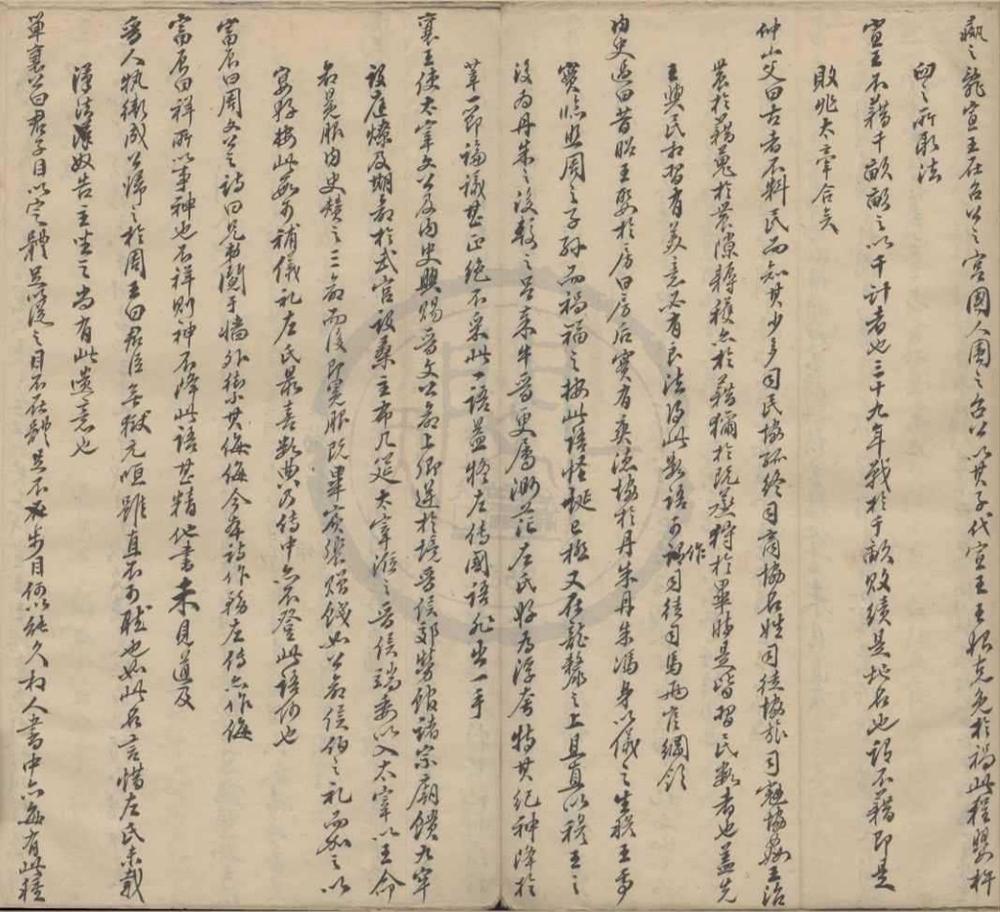 彘之亂宣王在召公之宮國人圍之召公以其子代宣王王克免於禍此程嬰杵
臼之所取法
宣王不藉千畝畝之以千計者也三十九年戰於千畝敗績是地名也謂不藉即是
敗兆太牽合矣
仲山父曰古者不料民而知其少多司民協孤終司商協名姓司徒協旅司寇協姦王治
農於藉蒐於農隙耨穫亦於藉獮於既烝狩於畢時是皆習民數者也蓋先
王與民相習有美意必有良法此數語可作司徒司馬兩官綱領
內史過曰昔昭王娶於房曰房后實有爽德協於丹朱丹朱馮身以儀之生穆王焉
實臨照周之子孫而禍福之按此語怪誕已極又在龍漦之上且直以穆王之
後為丹朱之後較之呂秦牛晉更屬渺茫左氏好為浮夸特其紀神降於
莘一節論議甚正絕不采此一語蓋左傳國語非出一手
襄王使太宰文公及內史興賜晉文公命上卿逆於境晉侯郊勞館諸宗廟饋九牢
設庭燎及期命於武宮設桑主布几筵太宰涖之晉侯端委以入太宰以王命
命冕服內史贊之三命而後即冕服既畢賓饗贈餞如公命侯伯之礼而加之以
宴好按此最可補儀礼左氏最喜數典乃傳中亦不登此語何也
富辰曰周文公之詩曰兄弟鬩于墻外禦其侮侮今本詩作務左傳亦作侮
富辰曰祥所以事神也不祥則神不降此語甚精他書未見道及
晉人執衛成公歸之於周王曰君臣無獄元咺雖直不可聽也如此名言惜左氏未載
漢法奴告主坐之尚有此遺意也
單襄公曰君子目以定體足以從之目不在體足不步目何以能久相人書中亦每有此種